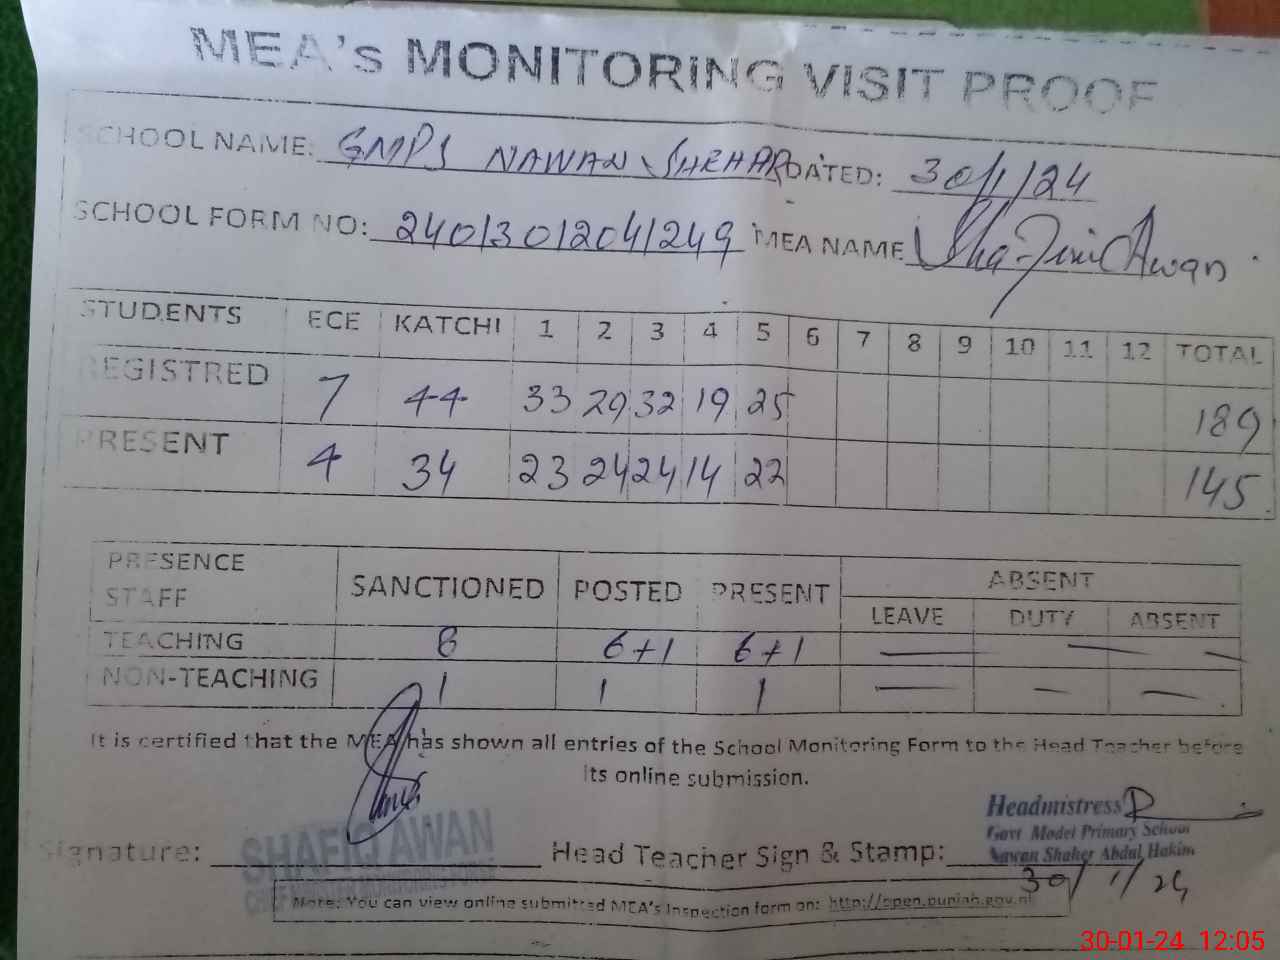 MEA's MONITORING VISIT PROOF
SCHOOL NAME: GMPS NAWAN SHEHAR DATED: 30/1/24
SCHOOL FORM NO: 240130120412 49 MEA NAME Awan
STUDENTS ECE KATCHI 1 2 3 4 5 6 7 8 9 10 11 12 TOTAL
REGISTRED 7 44 33 29 32 19 25 189
PRESENT 4 34 23 24 24 14 22 145
PRESENCE STAFF SANCTIONED POSTED PRESENT ABSENT
LEAVE DUTY ABSENT
TEACHING 8 6+1 6+1 — — —
NON-TEACHING 1 1 1 — — —
It is certified that the MEA has shown all entries of the School Monitoring Form to the Head Teacher before
its online submission.
Headmistress
Govt Model Primary School
Nawan Shaher Abdul Hakim
SHAFIQ AWAN
Signature: Head Teacher Sign & Stamp:
30/1/24
Note: You can view online submitted MEA's Inspection form on: http://open.punjab.gov.pk
30-01-24 12:05